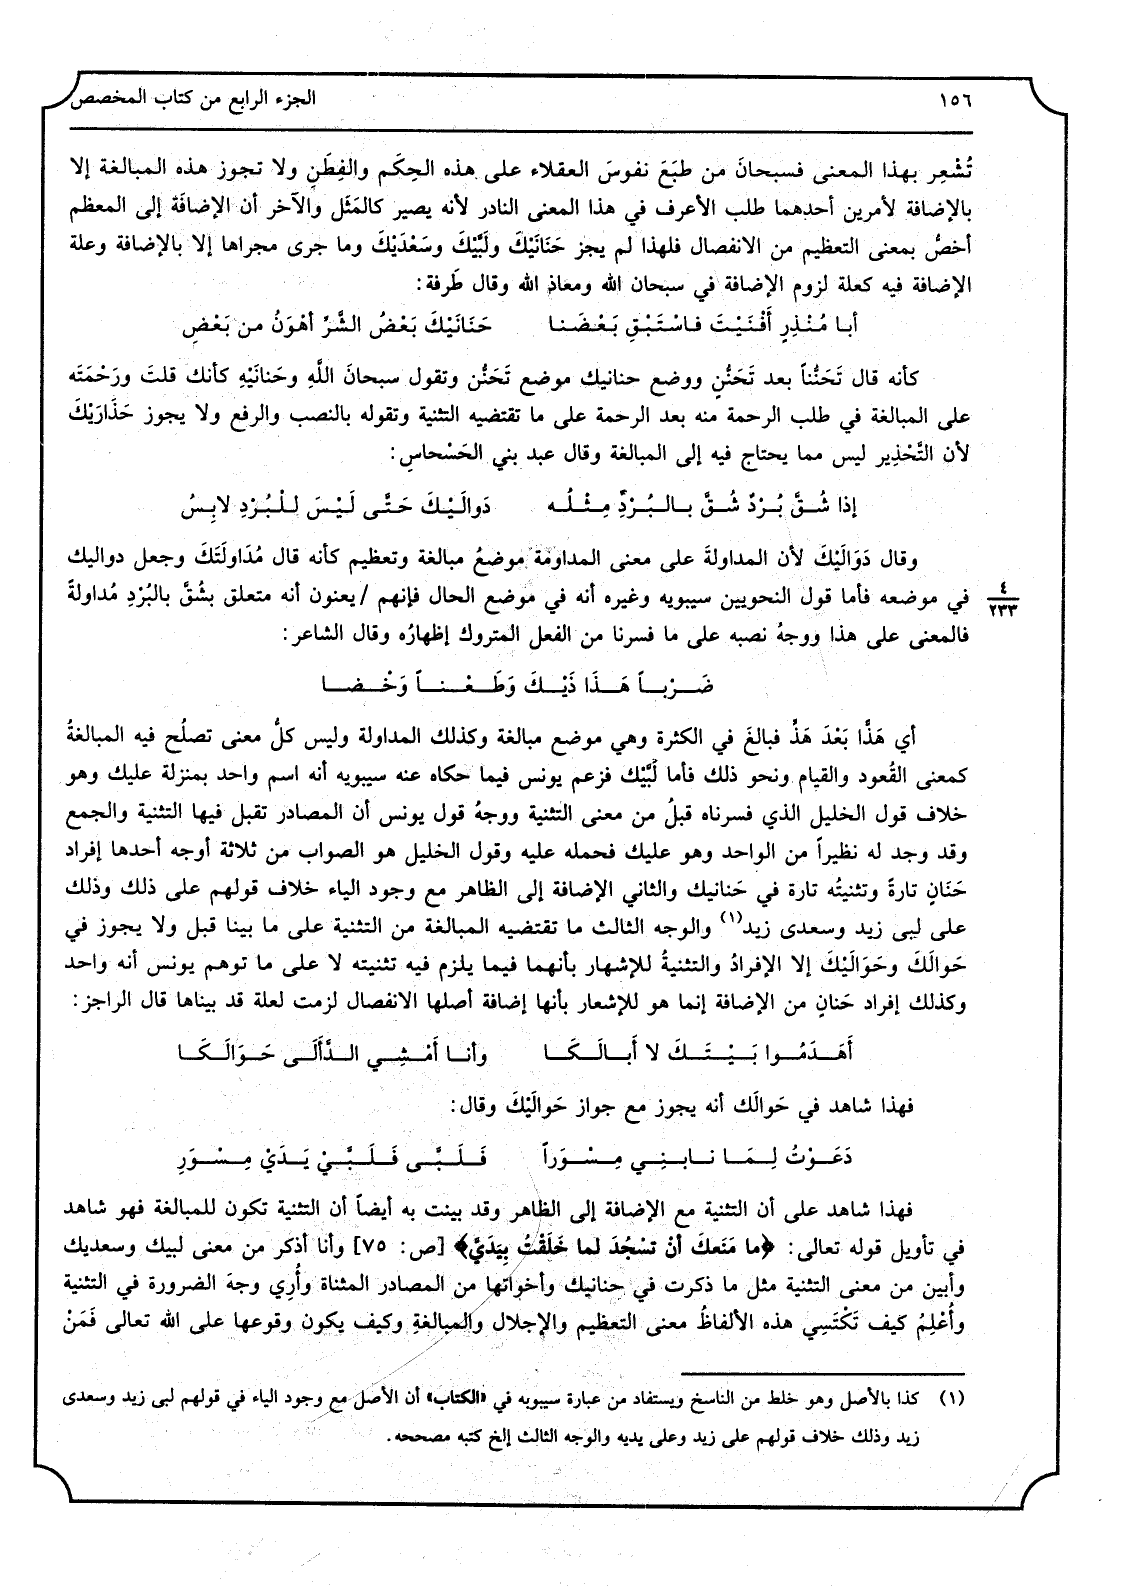 ١٥٦
الجزء الرابع من كتاب المخصص
تُشْعِر بهذا المعنى فسبحانَ من طبَعَ نفوسَ العقلاء على هذه الحِكَم والفِطَنِ ولا تجوز هذه المبالغة إلا
بالإضافة لأمرين أحدهما طلب الأعرف في هذا المعنى النادر لأنه يصير كالمَثَل والآخر أن الإضافَة إلى المعظم
أخصُّ بمعنى التعظيم من الانفصال فلهذا لم يجز حَنَانَيْكَ ولَبَّيْكَ وسَعْدَيْكَ وما جرى مجراها إلا بالإضافة وعلة
الإضافة فيه كعلة لزوم الإضافة في سبحان الله ومعاذِ الله وقال طَرفة:
أبا مُنْذِرٍ أَفْنَيْتَ فاسْتَبْقِ بَعْضَنا حَنَانَيْكَ بَعْضُ الشَّرِّ أهْوَنُ من بَعْضِ
كأنه قال تَحَنُّناً بعد تَحَنُّنٍ ووضع حنانيك موضع تَحَنُّن وتقول سبحانَ اللَّهِ وحَنانَيْهِ كأنك قلتَ ورَحْمَتَه
على المبالغة في طلب الرحمة منه بعد الرحمة على ما تقتضيه التثنية وتقوله بالنصب والرفع ولا يجوز حَذَارَيْكَ
لأن التَّحْذِير ليس مما يحتاج فيه إلى المبالغة وقال عبد بني الحَسْحاسِ:
إذا شُقَّ بُرْدٌ شُقَّ بالبُرْدِ مِثْلُه دَوالَيْكَ حَتَّى لَيْسَ لِلْبُرْدِ لابِسُ
وقال دَوَالَيْكَ لأن المداولةَ على معنى المداومَة موضعُ مبالغة وتعظيم كأنه قال مُدَاولَتَكَ وجعل دواليك
في موضعه فأما قول النحويين سيبويه وغيره أنه في موضع الحال فإنهم /يعنون أنه متعلق بشُقَّ بالبُرْدِ مُداولةً
٤
٢٣٣
فالمعنى على هذا ووجهُ نصبه على ما فسرنا من الفعل المتروك إظهارُه وقال الشاعر:
ضَرْباً هَذَا ذَيْكَ وَطَعْناً وَخْضا
أي هَذًّا بَعْدَ هَذٍّ فبالغَ في الكثرة وهي موضع مبالغة وكذلك المداولة وليس كلُّ معنى تصلُح فيه المبالغةُ
كمعنى القُعود والقيام ونحو ذلك فأما لَبَّيْك فزعم يونس فيما حكاه عنه سيبويه أنه اسم واحد بمنزلة عليك وهو
خلاف قول الخليل الذي فسرناه قبلُ من معنى التثنية ووجهُ قول يونس أن المصادر تقبل فيها التثنية والجمع
وقد وجد له نظيراً من الواحد وهو عليك فحمله عليه وقول الخليل هو الصواب من ثلاثة أوجه أحدها إفراد
حَنَانِ تارةً وتثنيتُه تارة في حَنانيك والثاني الإضافة إلى الظاهر مع وجود الياء خلاف قولهم على ذلك وذلك
على لبى زيد وسعدى زيد(١) والوجه الثالث ما تقتضيه المبالغة من التثنية على ما بينا قبل ولا يجوز في
حَوالَكَ وحَوَالَيْكَ إلا الإفرادُ والتثنيةُ للإشهار بأنهما فيما يلزم فيه تثنيته لا على ما توهم يونس أنه واحد
وكذلك إفراد حَنانِ من الإضافة إنما هو للإشعار بأنها إضافة أصلها الانفصال لزمت لعلة قد بيناها قال الراجز:
أَهَدَمُوا بَيْتَكَ لا أَبالَكَا وأنا أَمْشِي الدَّأَلَى حَوَالَكَا
فهذا شاهد في حَوالَك أنه يجوز مع جواز حَوالَيْكَ وقال:
دَعَوْتُ لِمَا نابنِي مِسْوَراً فَلَبَّى فَلَبَّيْ يَدَيْ مِسْوَرِ
فهذا شاهد على أن التثنية مع الإضافة إلى الظاهر وقد بينت به أيضاً أن التثنية تكون للمبالغة فهو شاهد
في تأويل قوله تعالى: ﴿ما مَنَعكَ أنْ تسْجُدَ لما خَلَقْتُ بِيَدَيَّ﴾ [ص: ٧٥] وأنا أذكر من معنى لبيك وسعديك
وأبين من معنى التثنية مثل ما ذكرت في حنانيك وأخواتها من المصادر المثناة وأُرِي وجهَ الضرورة في التثنية
وأُعْلِمُ كيف تَكْتَسِي هذه الألفاظُ معنى التعظيم والإجلال والمبالغةِ وكيف يكون وقوعها على الله تعالى فَمَنْ
(١) كذا بالأصل وهو خلط من الناسخ ويستفاد من عبارة سيبويه في «الكتاب» أن الأصل مع وجود الياء في قولهم لبى زيد وسعدى
زيد وذلك خلاف قولهم على زيد وعلى يديه والوجه الثالث إلخ كتبه مصححه.